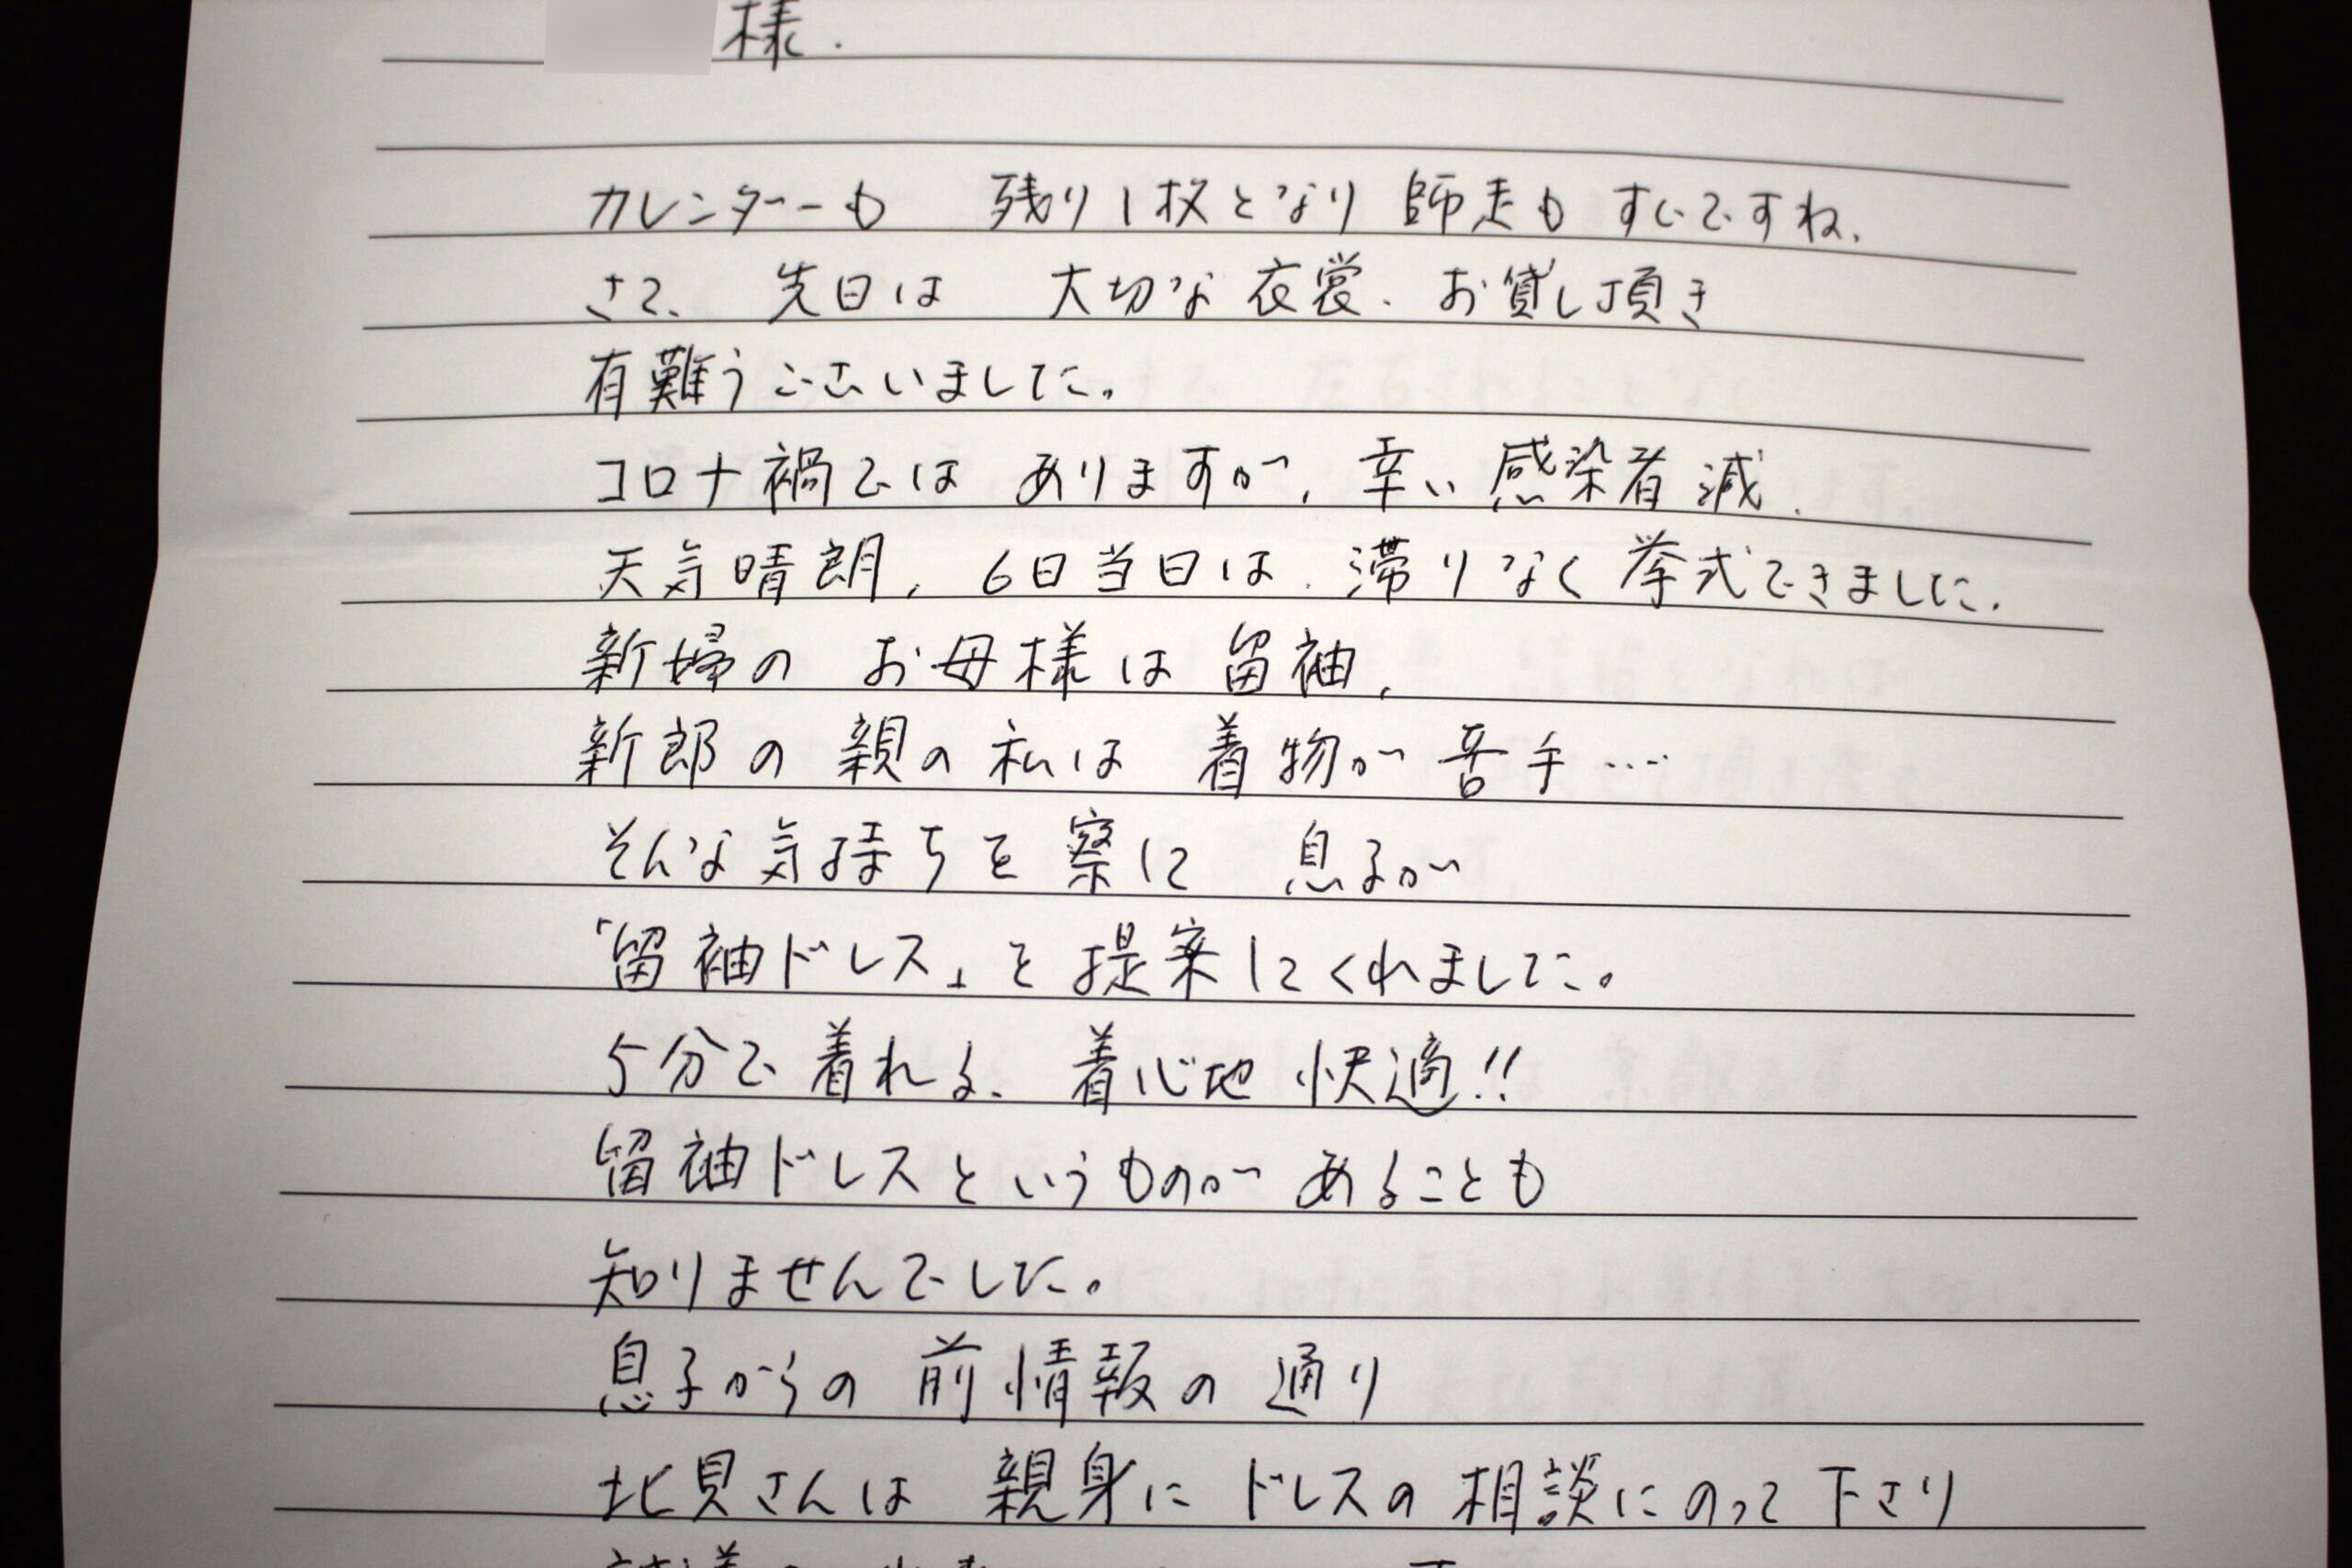 様.
カレンダーも 残り1枚となり 師走も すぐですね.
さて、 先日は 大切な衣裳、お貸し頂き
有難うございました。
コロナ禍では ありますが、幸い 感染者減、
天気晴朗、6日当日は、滞りなく挙式できました.
新婦の お母様は 留袖、
新郎の 親の 私は 着物が 苦手…
そんな気持ちを察して 息子が
「留袖ドレス」を提案してくれました。
5分で着れる、着心地快適!!
留袖ドレスというものが あることも
知りませんでした。
息子からの 前情報の 通り
北見さんは 親身に ドレスの 相談にのって 下さり